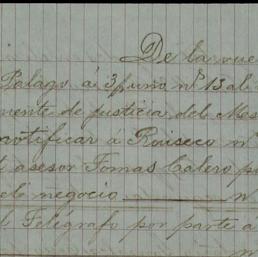 De la vue
Palago á 3 puno nº 13 al
mente de justicia del Mes
notificar á Roiseco nº
asesor Tomas Calero p
del negocio n
Telégrafo por parte á